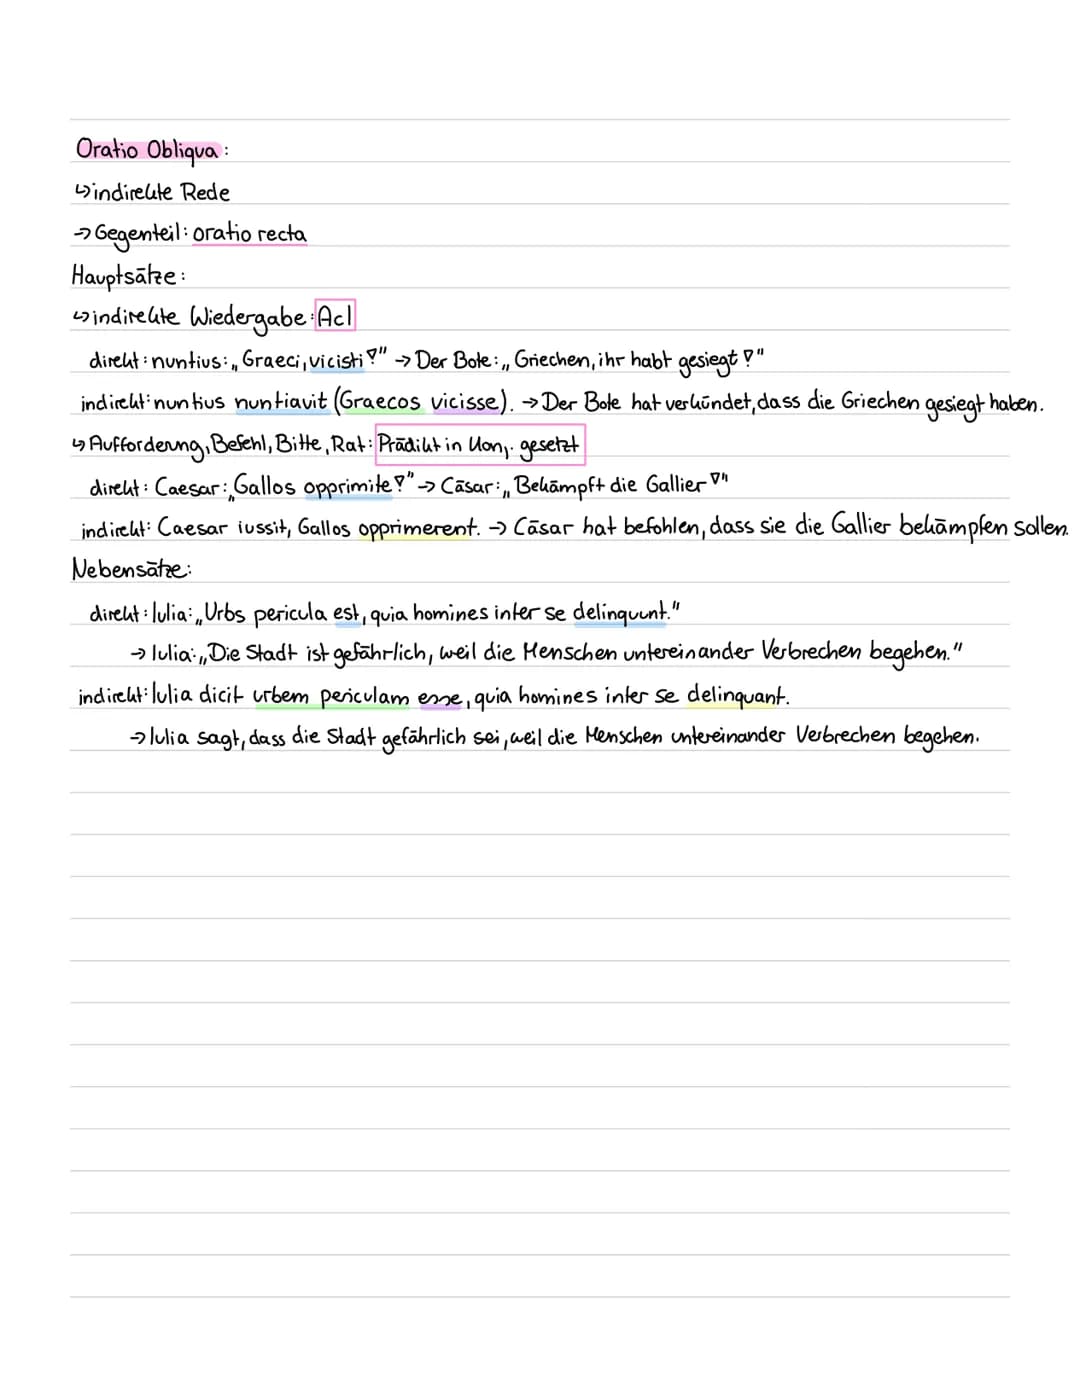 Oratio Obliqua:
↳ indirekte Rede
→ Gegenteil: oratio recta
Hauptsätze:
↳ indirekte Wiedergabe: AcI
direkt: nuntius: „Graeci, vicisti!" → Der Bote: „Griechen, ihr habt gesiegt!"
indirekt: nuntius nuntiavit (Graecos vicisse). → Der Bote hat verkündet, dass die Griechen gesiegt haben.
↳ Aufforderung, Befehl, Bitte, Rat: Prädikt in Konj. gesetzt
direkt: Caesar: „Gallos opprimite!" → Cäsar: „Bekämpft die Gallier!"
indirekt: Caesar iussit, Gallos opprimerent. → Cäsar hat befohlen, dass sie die Gallier bekämpfen sollen.
Nebensätze:
direkt: Iulia: „Urbs pericula est, quia homines inter se delinquunt."
→ Iulia: „Die Stadt ist gefährlich, weil die Menschen untereinander Verbrechen begehen."
indirekt: Iulia dicit urbem periculam esse, quia homines inter se delinquant.
→ Iulia sagt, dass die Stadt gefährlich sei, weil die Menschen untereinander Verbrechen begehen.